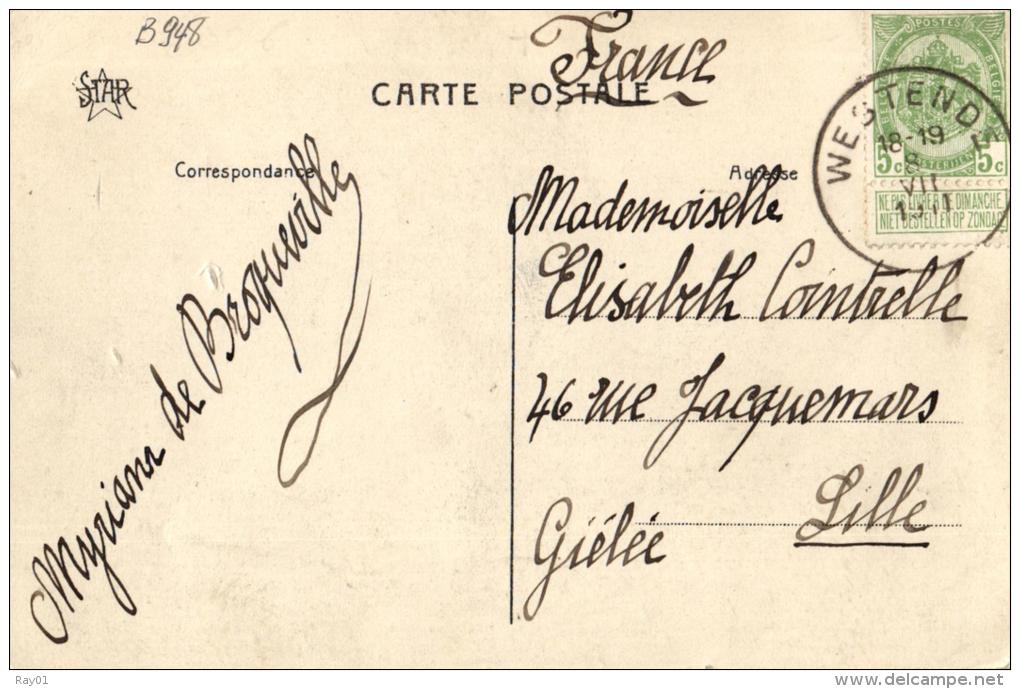 B948
France
STAR
CARTE POSTALE
Correspondance
Adresse
POSTES
5c 5c
NE PAS LIVRER LE DIMANCHE
NIET BESTELLEN OP ZONDAG
WESTENDE
18-19
8
VII
1911
Mademoiselle
Elisabeth Cointrelle
46 rue Jacquemars
Giélée Lille
Myriam de Broqueville
Ray01
delcampe.net